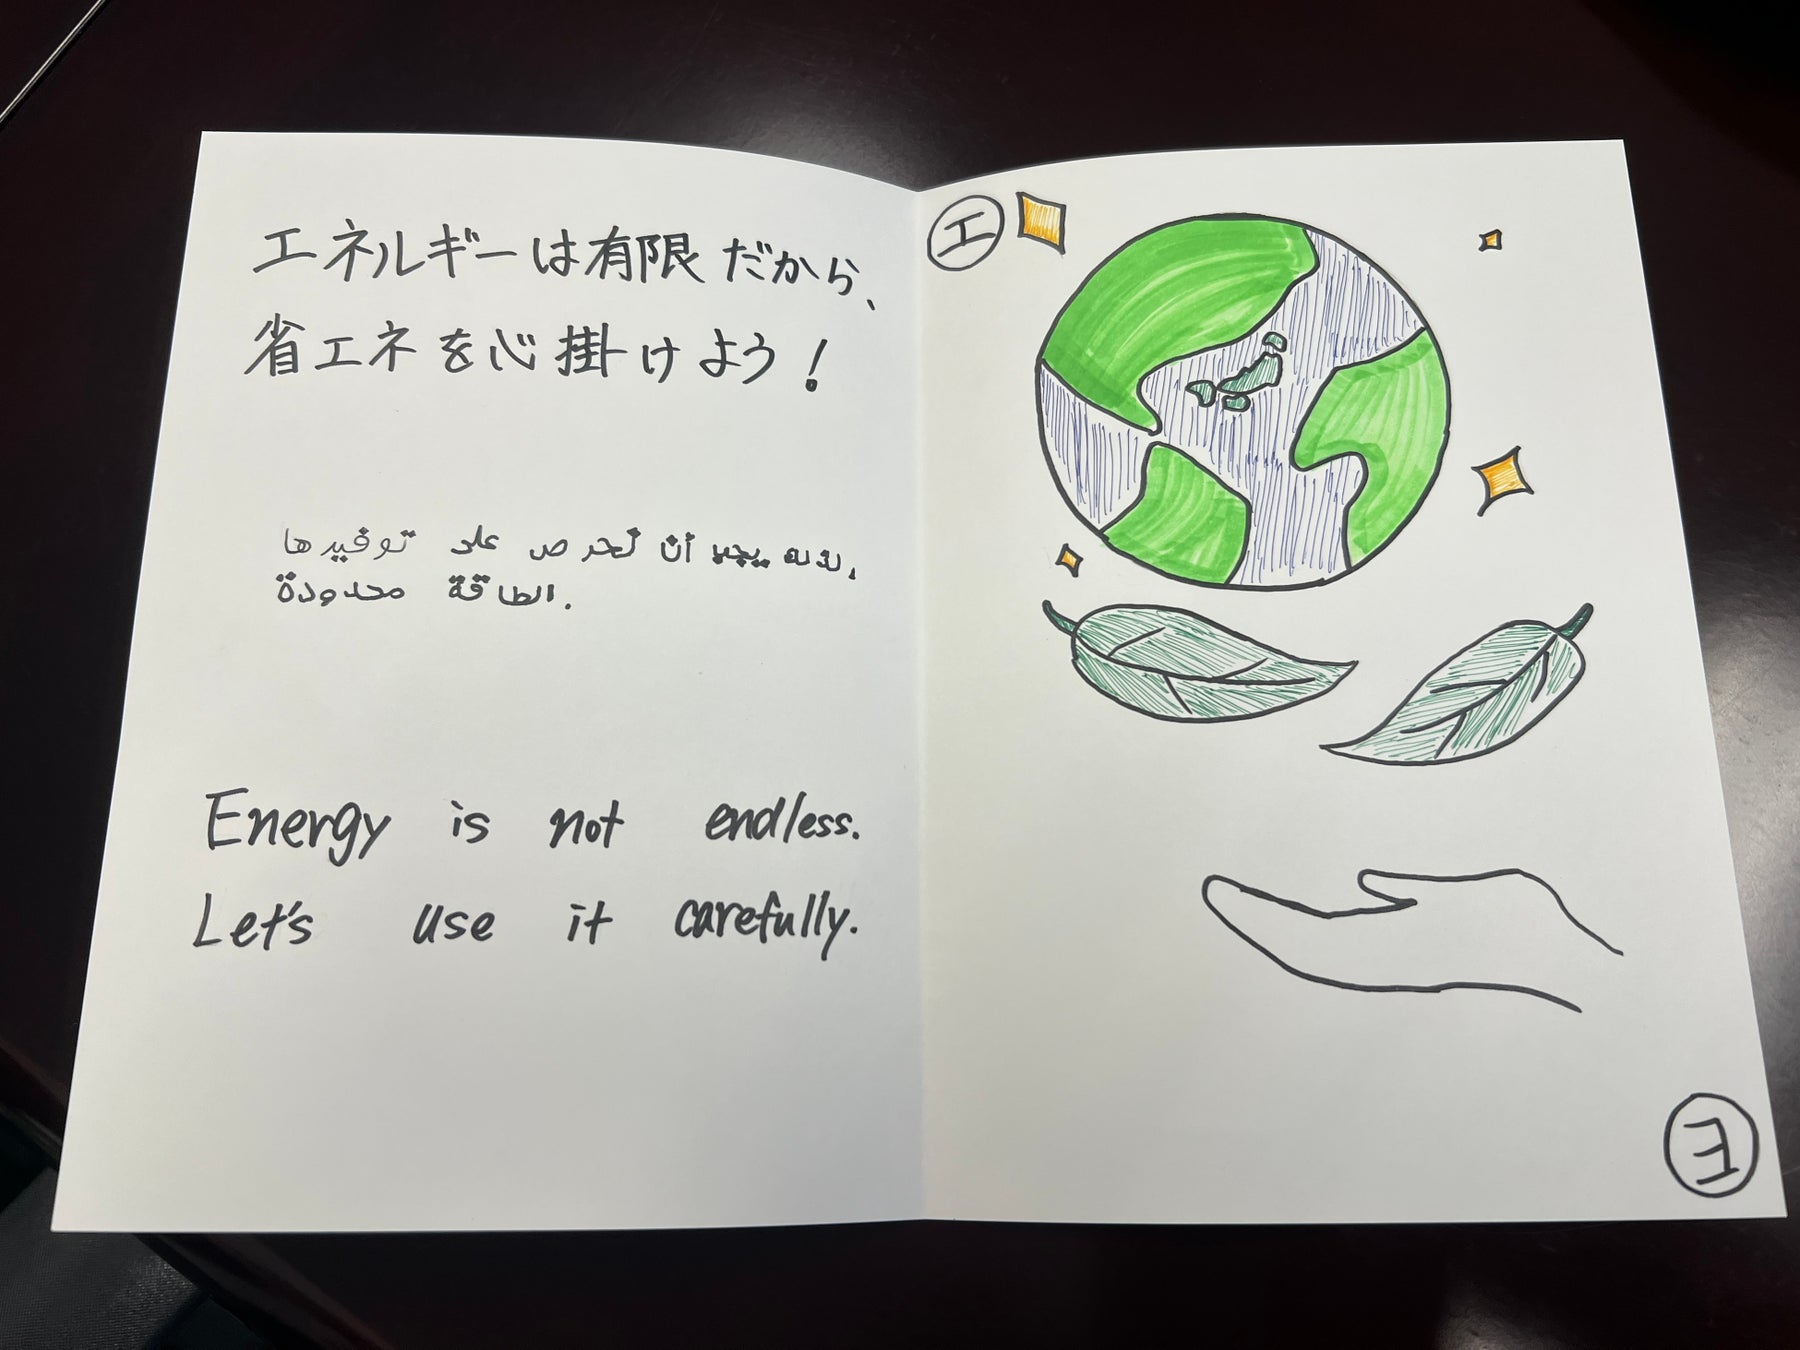 エネルギーは有限だから、
省エネを心掛けよう!
،لذلك يجب أن نحرص على توفيرها
.الطاقة محدودة
Energy is not endless.
Let's use it carefully.
エ
ヨ